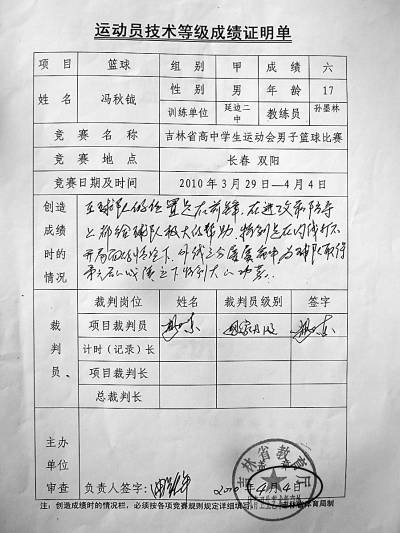 运动员技术等级成绩证明单
项目 篮球 组别 甲 成绩 六
姓名 冯秋钺 性别 男 年龄 17
训练单位 延边二中 教练员 孙墨林
竞赛名称 吉林省高中学生运动会男子篮球比赛
竞赛地点 长春 双阳
竞赛日期及时间 2010年3月29—4月4日
创造成绩时的情况
在球队的位置是在前锋,在进攻和防守
上都给球队极大的帮助,特别是在内线打不
开局面的情况下,外线三分屡屡命中,为球队取得
裁判员
裁判岗位 姓名 裁判员级别 签字
项目裁判员
计时(记录)长
项目裁判长
总裁判长
主办单位审查
负责人签字:
2010年4月4日
吉林省教育厅
注:创造成绩时的情况栏,必须按各项竞赛规则规定详细填写
体育局制